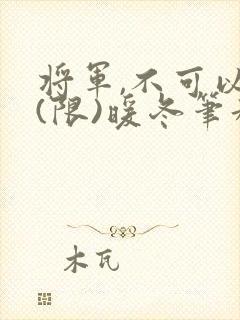 将軍,不可以
(限)暖冬筆
木瓦